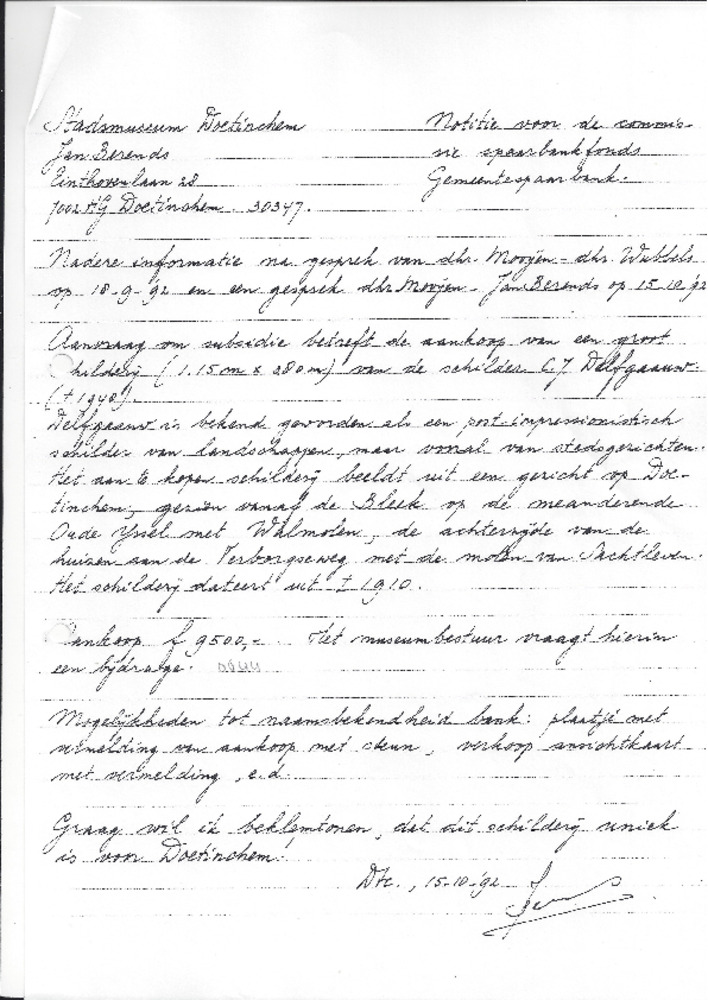 Stadsmuseum Doetinchem
Jan Berends
Einthovenlaan 28
7002 HG Doetinchem. 30347.
Notitie voor de commis-
sie spaarbankfonds
Gemeentespaarbank.
Nadere informatie na gesprek van dhr. Mooijen - dhr. Wubbels
op 18-9-92 en een gesprek dhr Mooijen - Jan Berends op 15-10-'92
Aanvraag om subsidie betreft de aankoop van een groot
childerij (1.15 m x 080 m) van de schilder C.J. Delfgaauw.
(† 1940).
Delfgaauw is bekend geworden als een post-impressionistisch
schilder van landschappen, maar vooral van stedsgezichten.
Het aan te kopen schilderij beeldt uit een gezicht op Doe-
tinchem, gezien vanaf de Bleek op de meanderende
Oude IJssel met Walmolen, de achterzijde van de
huizen aan de Terborgseweg met de molen van Sachtleven.
Het schilderij dateert uit ± 1910.
Aankoop f 9500,- Het museumbestuur vraagt hierin
een bijdrage.
Mogelijkheden tot naamsbekendheid bank: plaatje met
vermelding van aankoop met steun, verkoop ansichtkaart
met vermelding, e.d.
Graag wil ik beklemtonen, dat dit schilderij uniek
is voor Doetinchem.
Dtc., 15-10-'92